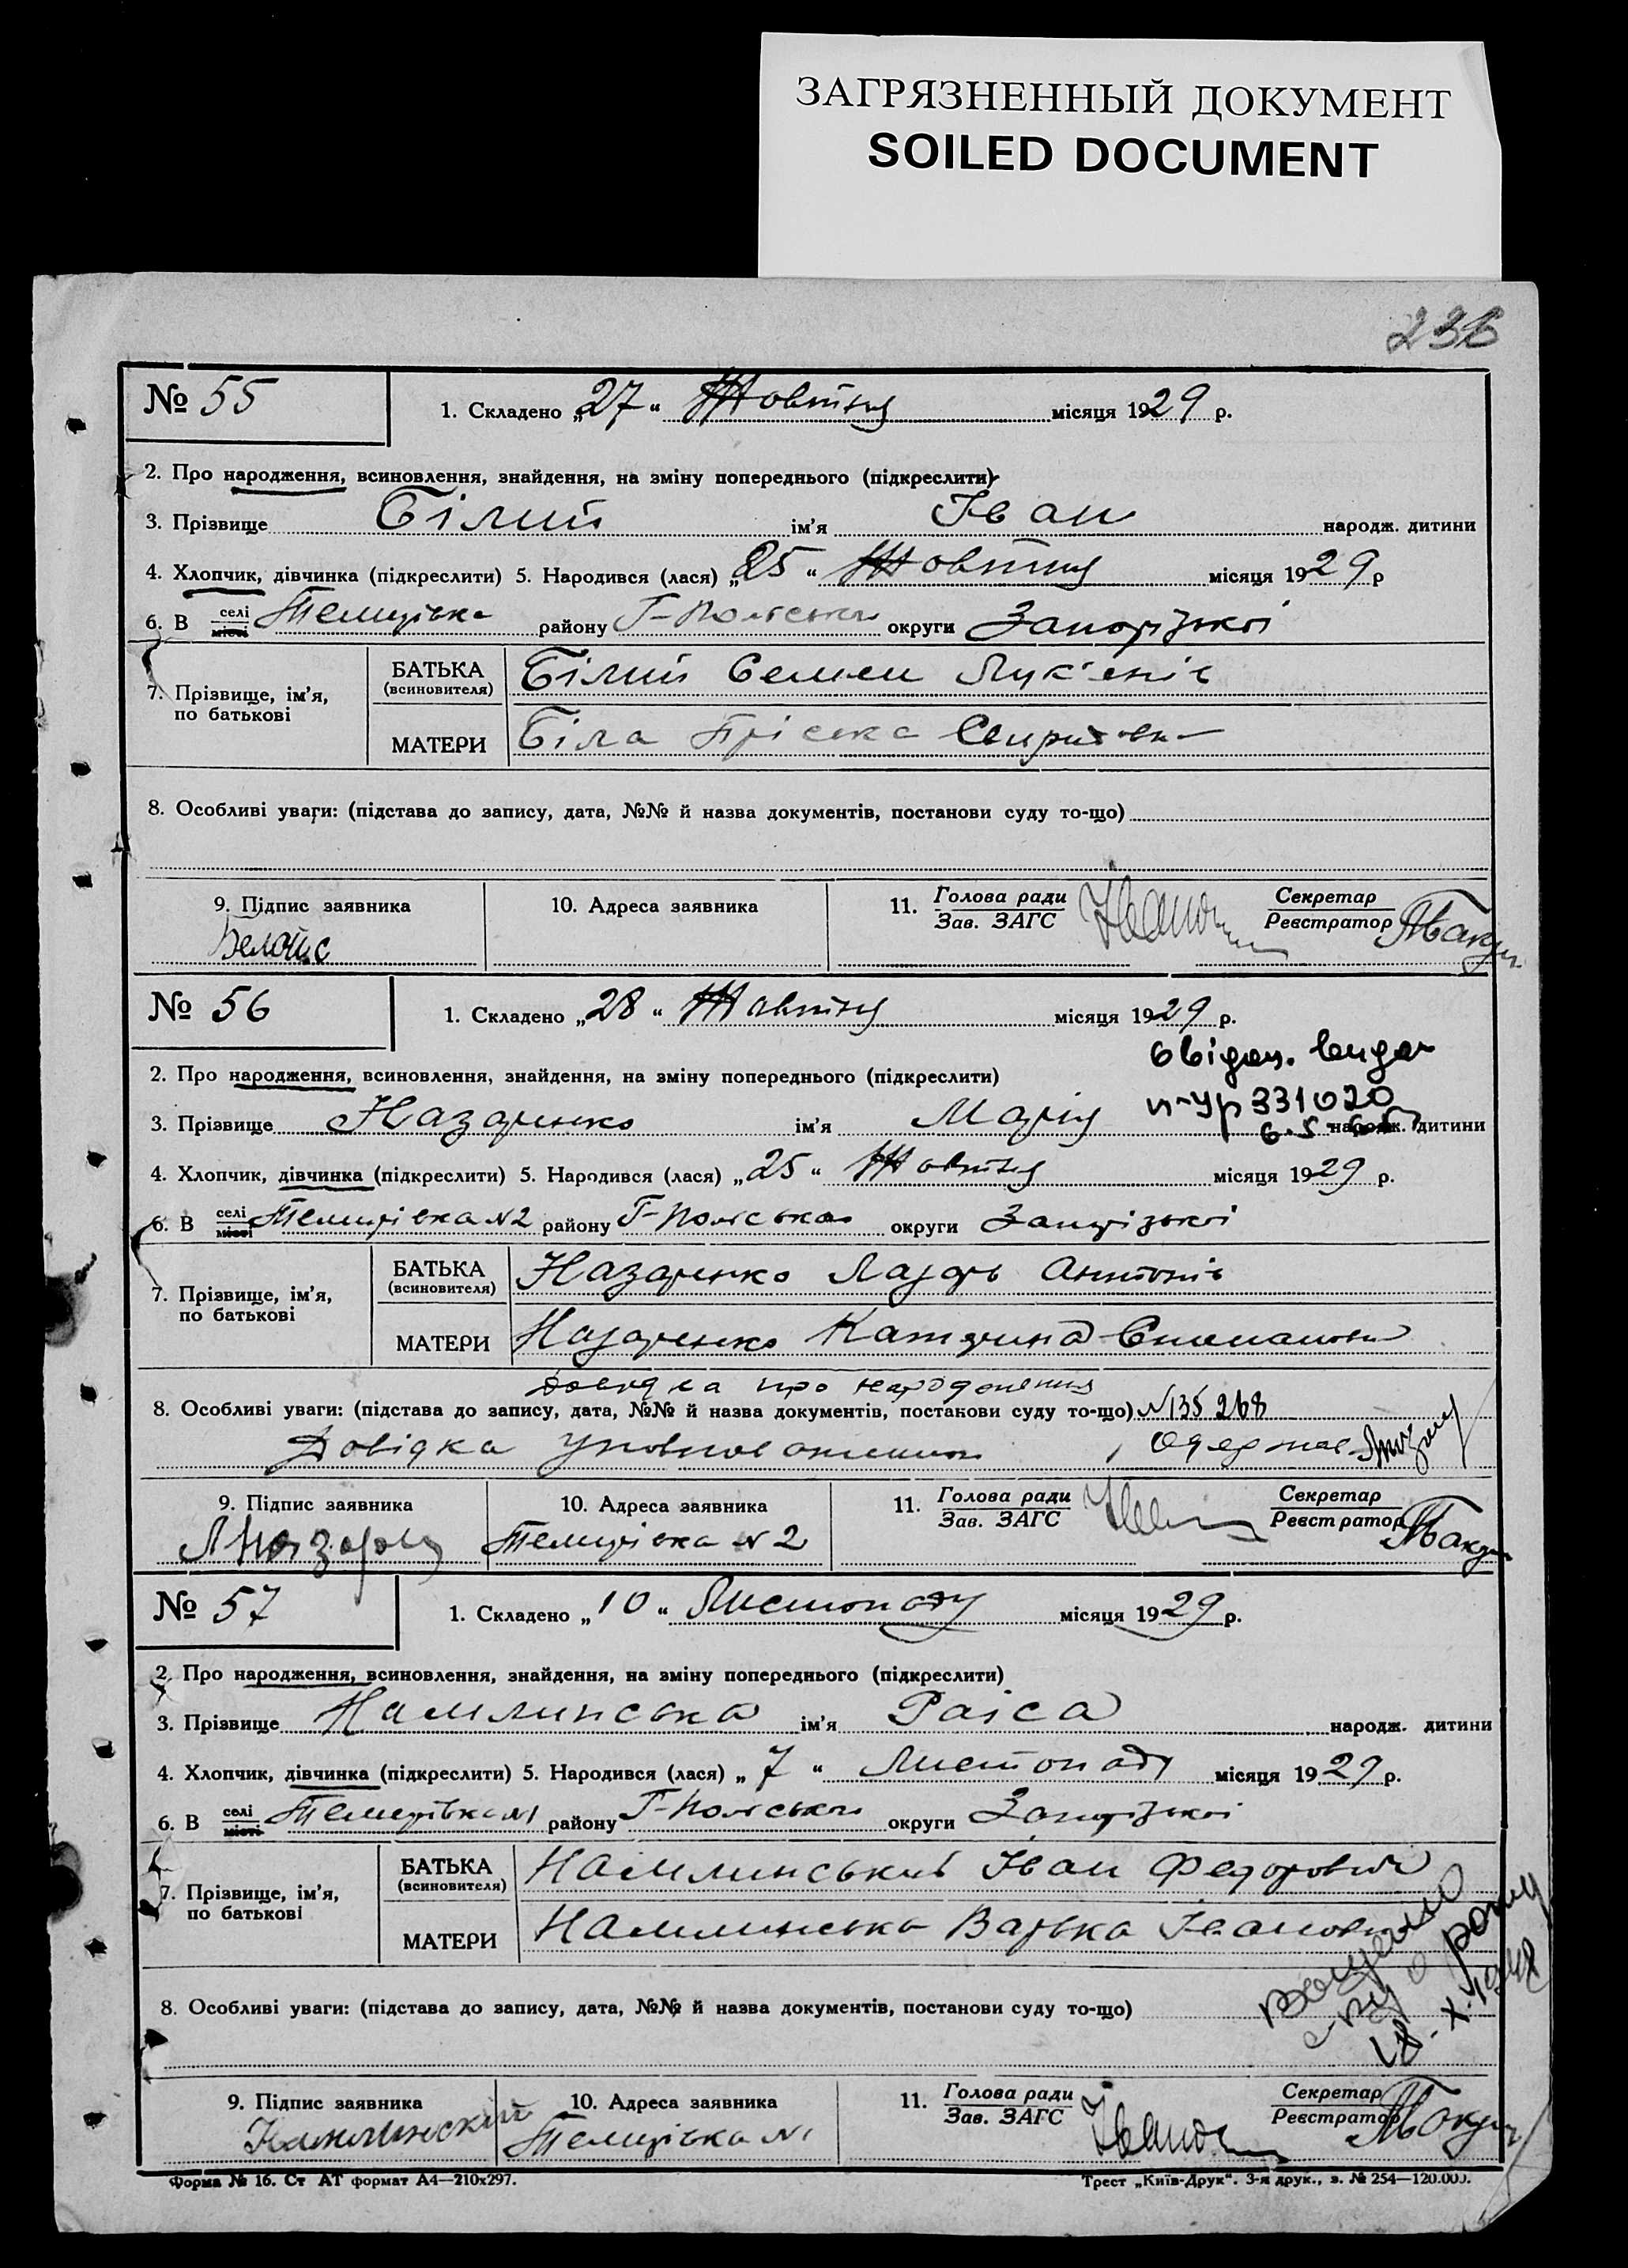 ЗАГРЯЗНЕННЫЙ ДОКУМЕНТ
SOILED DOCUMENT
236
№ 55
1. Складено „27“ Жовтня місяця 1929 р.
2. Про народження, всиновлення, знайдення, на зміну попереднього (підкреслити)
3. Прізвище Білий ім’я Іван народж. дитини
4. Хлопчик, дівчинка (підкреслити) 5. Народився (лася) „25“ Жовтня місяця 1929 р
6. В селі місті Темирівка району Г-Польськ округи Запорізької
7. Прізвище, ім’я, по батькові
БАТЬКА (всиновителя) Білий Семен Лук'янів
МАТЕРИ Біла Пріська
8. Особливі уваги: (підстава до запису, дата, №№ й назва документів, постанови суду то-що)
9. Підпис заявника
10. Адреса заявника
11. Голова ради Зав. ЗАГС
Секретар Реєстратор
№ 56
1. Складено „28“ Жовтня місяця 1929 р.
2. Про народження, всиновлення, знайдення, на зміну попереднього (підкреслити)
п-УР 331020
3. Прізвище Назаренко ім’я Марія народж. дитини
4. Хлопчик, дівчинка (підкреслити) 5. Народився (лася) „25“ Жовтня місяця 1929 р.
6. В селі місті Темирівка N2 району Г-Польська округи Запорізької
7. Прізвище, ім’я, по батькові
БАТЬКА (всиновителя) Назаренко Лазарь Антонів
МАТЕРИ Назаренко Катерина Степановн
Довідка про народження
8. Особливі уваги: (підстава до запису, дата, №№ й назва документів, постанови суду то-що) N135268
Довідка
9. Підпис заявника
10. Адреса заявника
11. Голова ради Зав. ЗАГС
Секретар Реєстратор
Темирівка N 2
№ 57
1. Складено „10“ Листопаду місяця 1929 р.
2. Про народження, всиновлення, знайдення, на зміну попереднього (підкреслити)
3. Прізвище Намлинська ім’я Раіса народж. дитини
4. Хлопчик, дівчинка (підкреслити) 5. Народився (лася) „7“ Листопаду місяця 1929 р.
6. В селі місті Темирівка N1 району Г-Польськ округи Запорізької
7. Прізвище, ім’я, по батькові
БАТЬКА (всиновителя) Намлинський Іван Федорович
МАТЕРИ Намлинська Варька Івановн
8. Особливі уваги: (підстава до запису, дата, №№ й назва документів, постанови суду то-що)
18.X.1948
9. Підпис заявника
10. Адреса заявника
11. Голова ради Зав. ЗАГС
Секретар Реєстратор
Темирівка N1
Форма № 16. Ст АТ формат А4—210х297.
Трест „Київ-Друк“. 3-я друк., з. № 254—120.000.